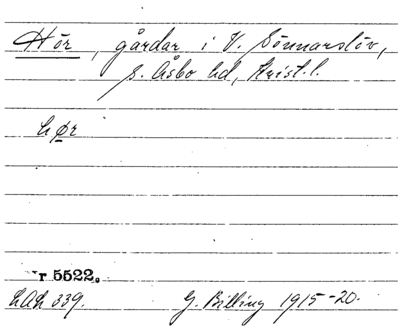 Hör, gårdar i V. Sönnarslöv,
S. Åsbo hd, Krist. l.
hør
Nr 5522.
LAL 339. G. Billing 1915-20.